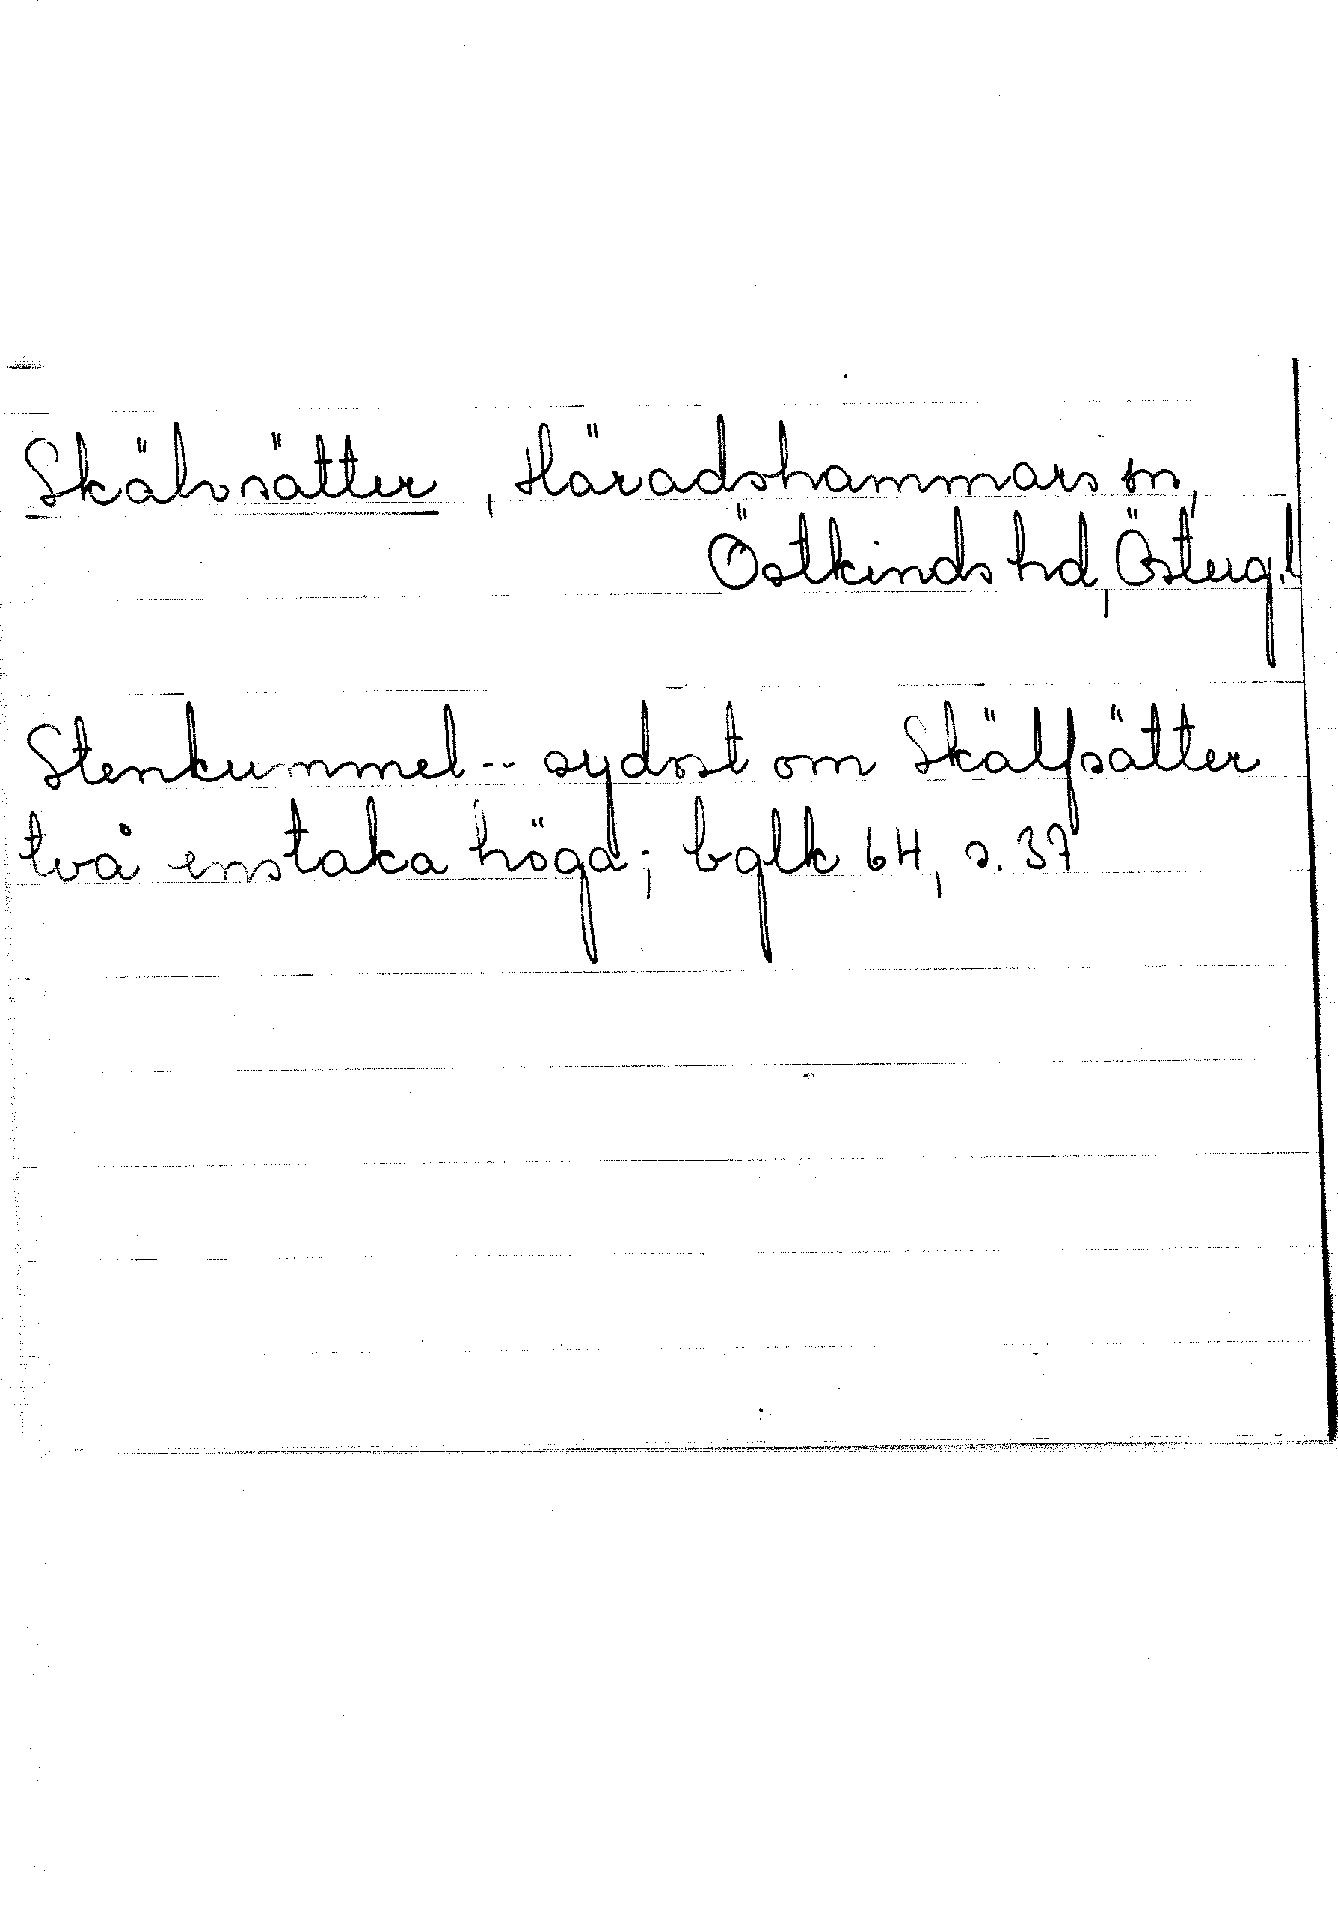 Skälvsätter, Häradshammars sn,
Östkinds hd, Österg.l
Stenkummel -- sydost om Skälfsätter
två enstaka höga; bglk 64, s. 37